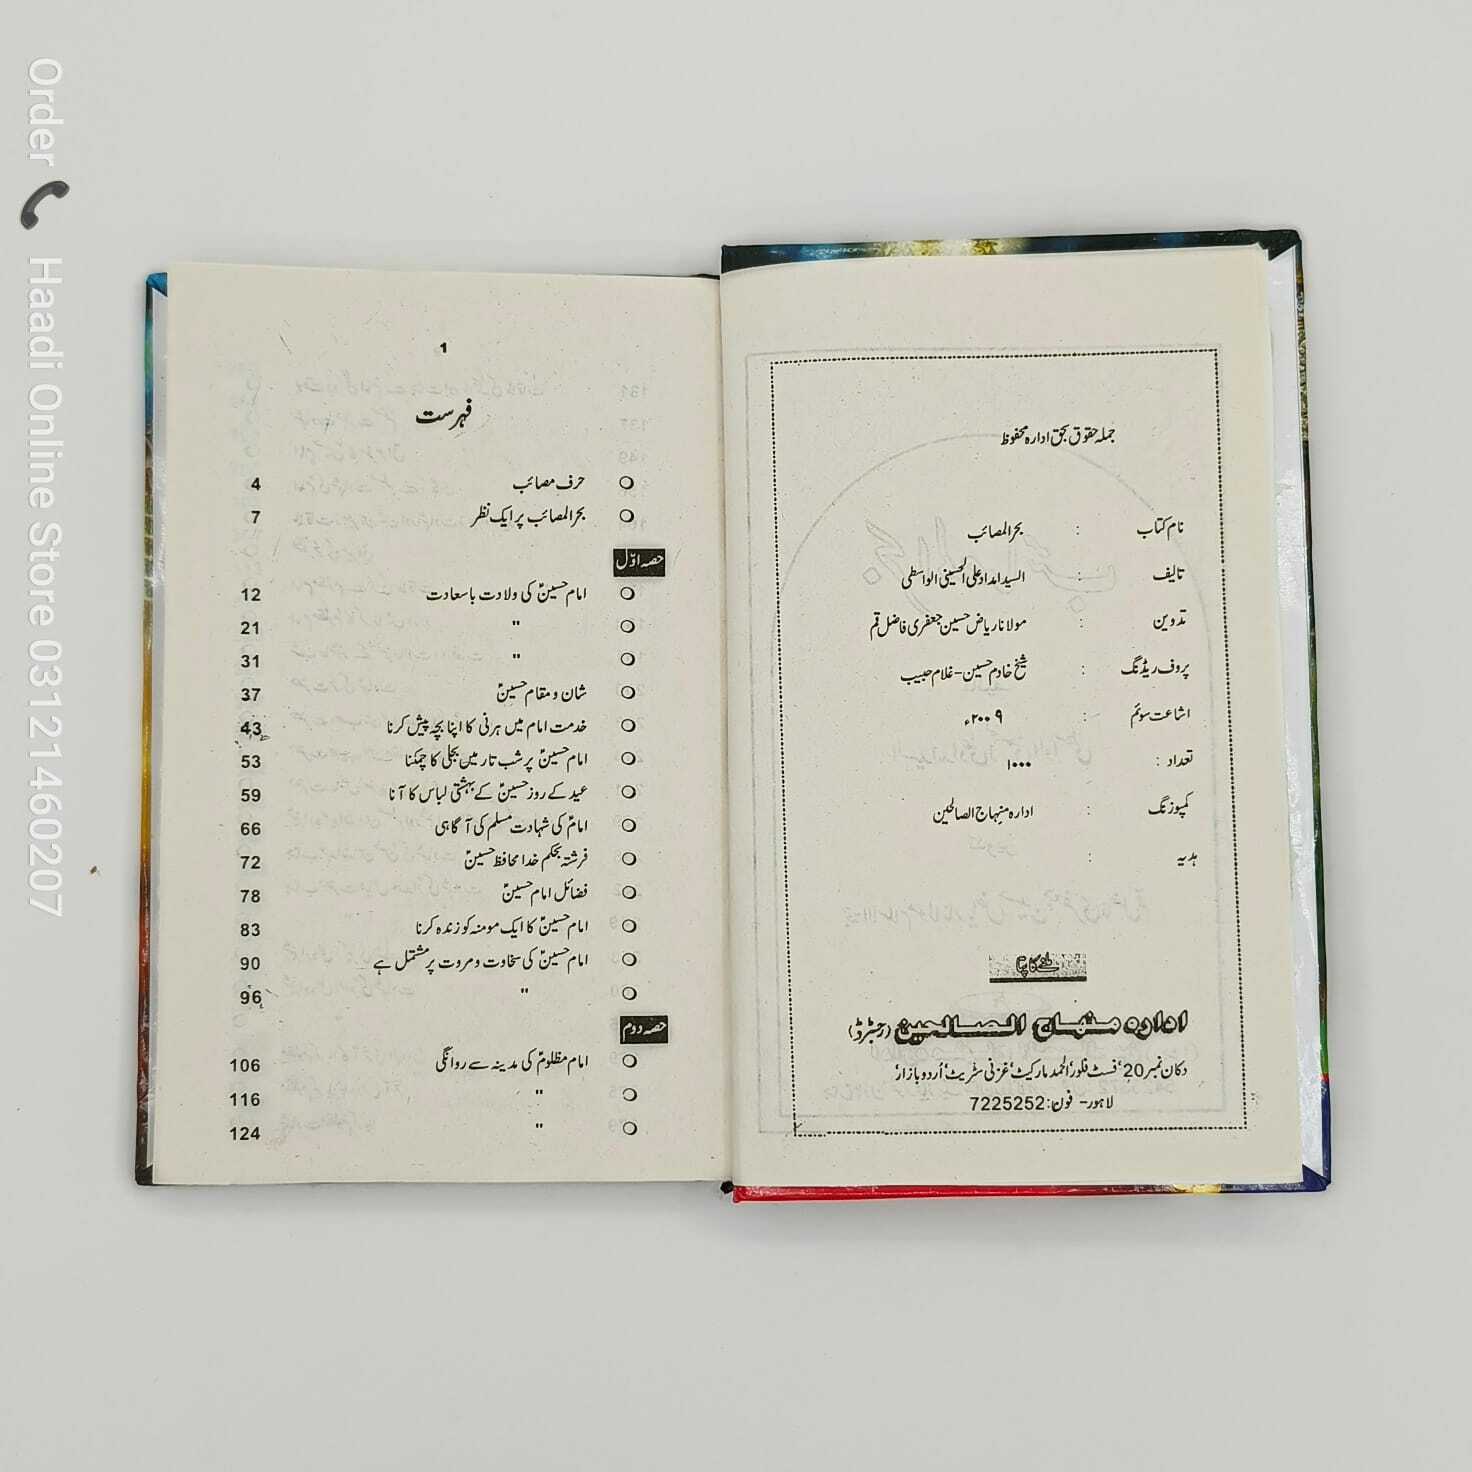 Order 📞 Haadi Online Store 03121460207
جملہ حقوق بحق ادارہ محفوظ
نام کتاب : بحر المصائب
تالیف : السید امداد علی الحسینی الواسطی
تدوین : مولانا ریاض حسین جعفری فاضل قم
پروف ریڈنگ : شیخ خادم حسین - غلام حبیب
اشاعت سوئم : ۲۰۰۹ء
تعداد : ۱۰۰۰
کمپوزنگ : ادارہ منہاج الصالحین
ہدیہ :
ملنے کا پتا
ادارہ منہاج الصالحین (رجسٹرڈ)
دکان نمبر 20، فسٹ فلور، الحمد مارکیٹ، غزنی سٹریٹ، اُردو بازار،
لاہور - فون: 7225252
1
فہرست
حرف مصائب 4
بحر المصائب پر ایک نظر 7
حصہ اوّل
امام حسینؑ کی ولادت باسعادت 12
" 21
" 31
شان و مقام حسینؑ 37
خدمت امام میں ہرنی کا اپنا بچہ پیش کرنا 43
امام حسینؑ پر شب تار مین بجلی کا چمکنا 53
عید کے روز حسینؑ کے بہشتی لباس کا آنا 59
امامؑ کی شہادت مسلم کی آگاہی 66
فرشتہ بحکم خدا محافظ حسینؑ 72
فضائل امام حسینؑ 78
امام حسینؑ کا ایک مومنہ کو زندہ کرنا 83
امام حسینؑ کی سخاوت و مروت پر مشتمل ہے 90
" 96
حصہ دوم
امام مظلومؑ کی مدینہ سے روانگی 106
" 116
" 124